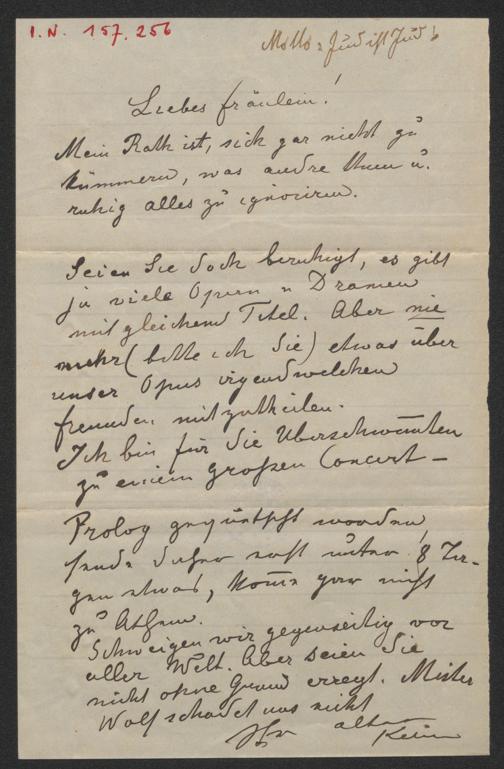 I.N. 157.256
Motto: Jud ist Jud!
Liebes Fräulein!
Mein Rath ist, sich gar nicht zu
kümmern, was andre thun u.
ruhig alles zu ignoriren.
Seien Sie doch beruhigt, es gibt
ja viele Opern u Dramen
mit gleichem Titel. Aber nie
mehr (bitte ich Sie) etwas über
unser Opus irgendwelchen
Freunden mitzutheilen.
Ich bin für die Überschwemmten
zu einem großen Concert-
Prolog gequetscht worden,
sende daher erst unter 8 Ta-
gen etwas, komme gar nicht
zu Athem.
Schweigen wir gegenseitig vor
aller Welt. Aber seien Sie
nicht ohne Grund erregt. Mister
Wolf schadet uns nicht
Ihr alter
Keim